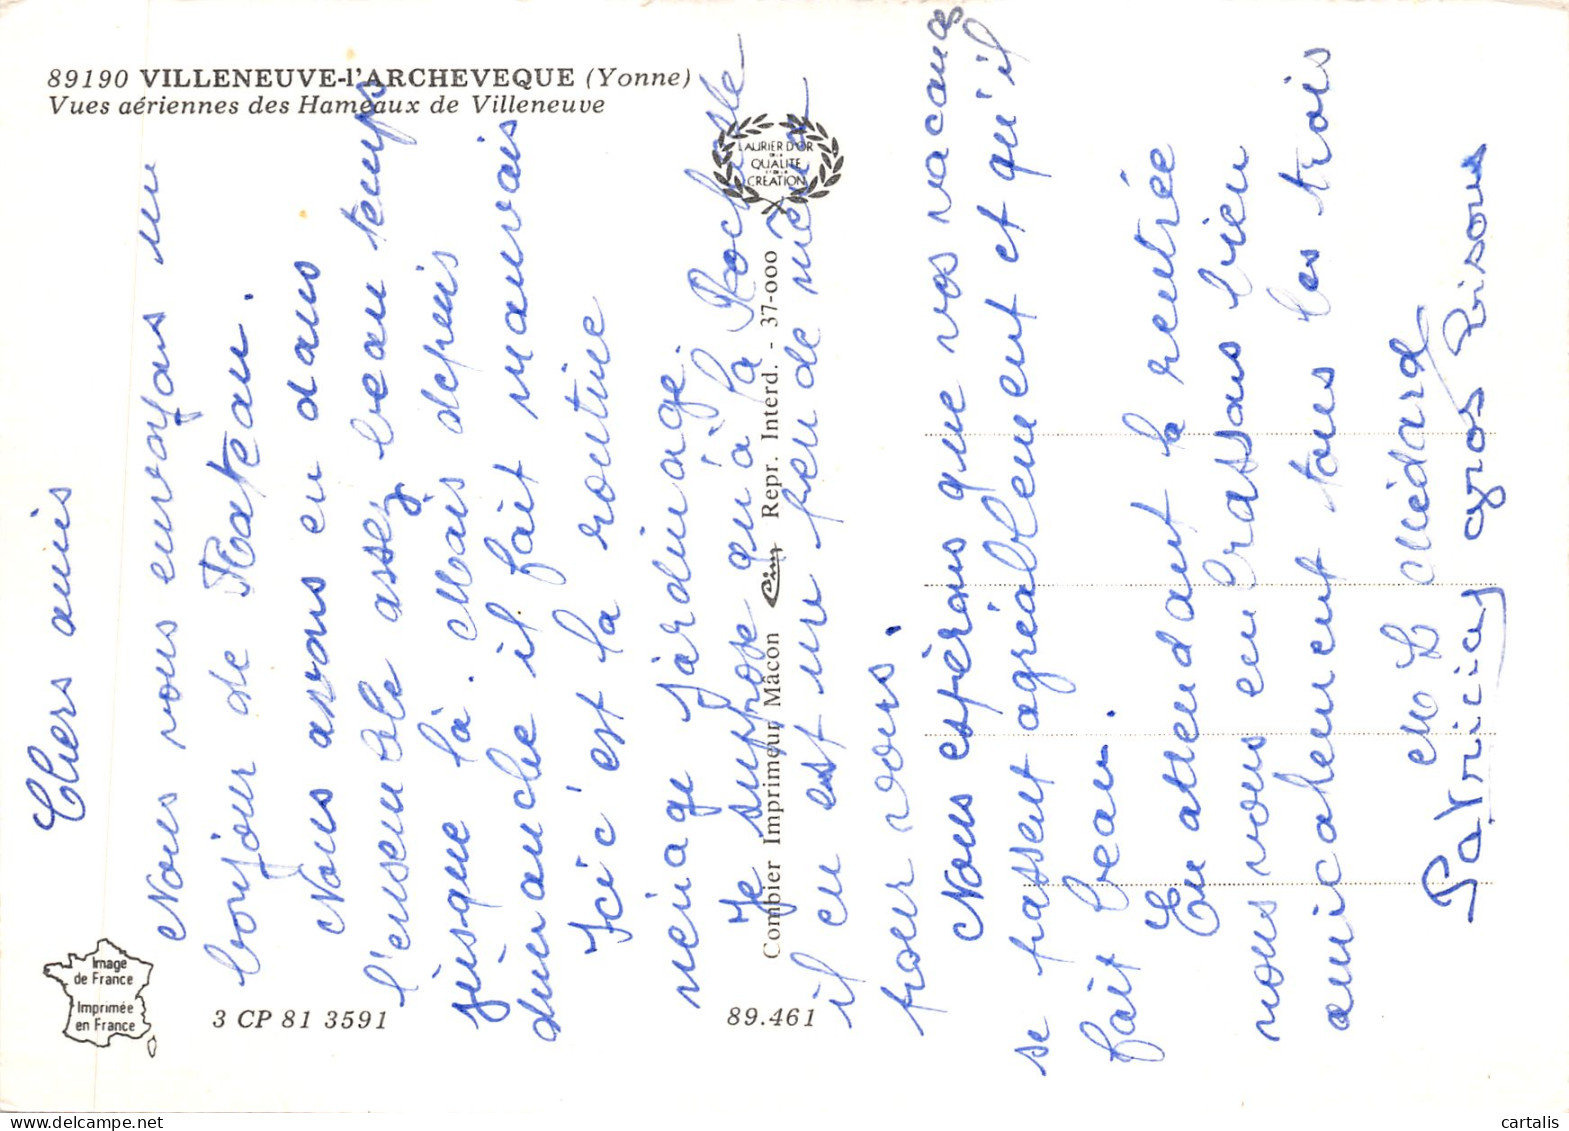 89190 VILLENEUVE-l'ARCHEVEQUE (Yonne)
Vues aériennes des Hameaux de Villeneuve
LAURIER D'OR
DE LA
QUALITE
ET DE LA
CREATION
Chers amis
Nous vous envoyons un
bonjour de Rateau.
Nous avons eu dans
l'ensemble assez beau temps
jusque là. Mais depuis
dimanche il fait mauvais
Ici c'est la routine
ménage jardinage.
Je suppose qu'à la Rochelle
il en est un peu de même
pour vous.
Nous espérons que vos vacances
se passent agréablement et qu'il
fait beau.
En attendant la rentrée
nous vous embrassons bien
amicalement tous les trois
M L Médard
Patricia gros bisous
Combier Imprimeur Mâcon Cim Repr. Interd. - 37-000
Image
de France
Imprimée
en France
3 CP 81 3591
89.461
cartalis